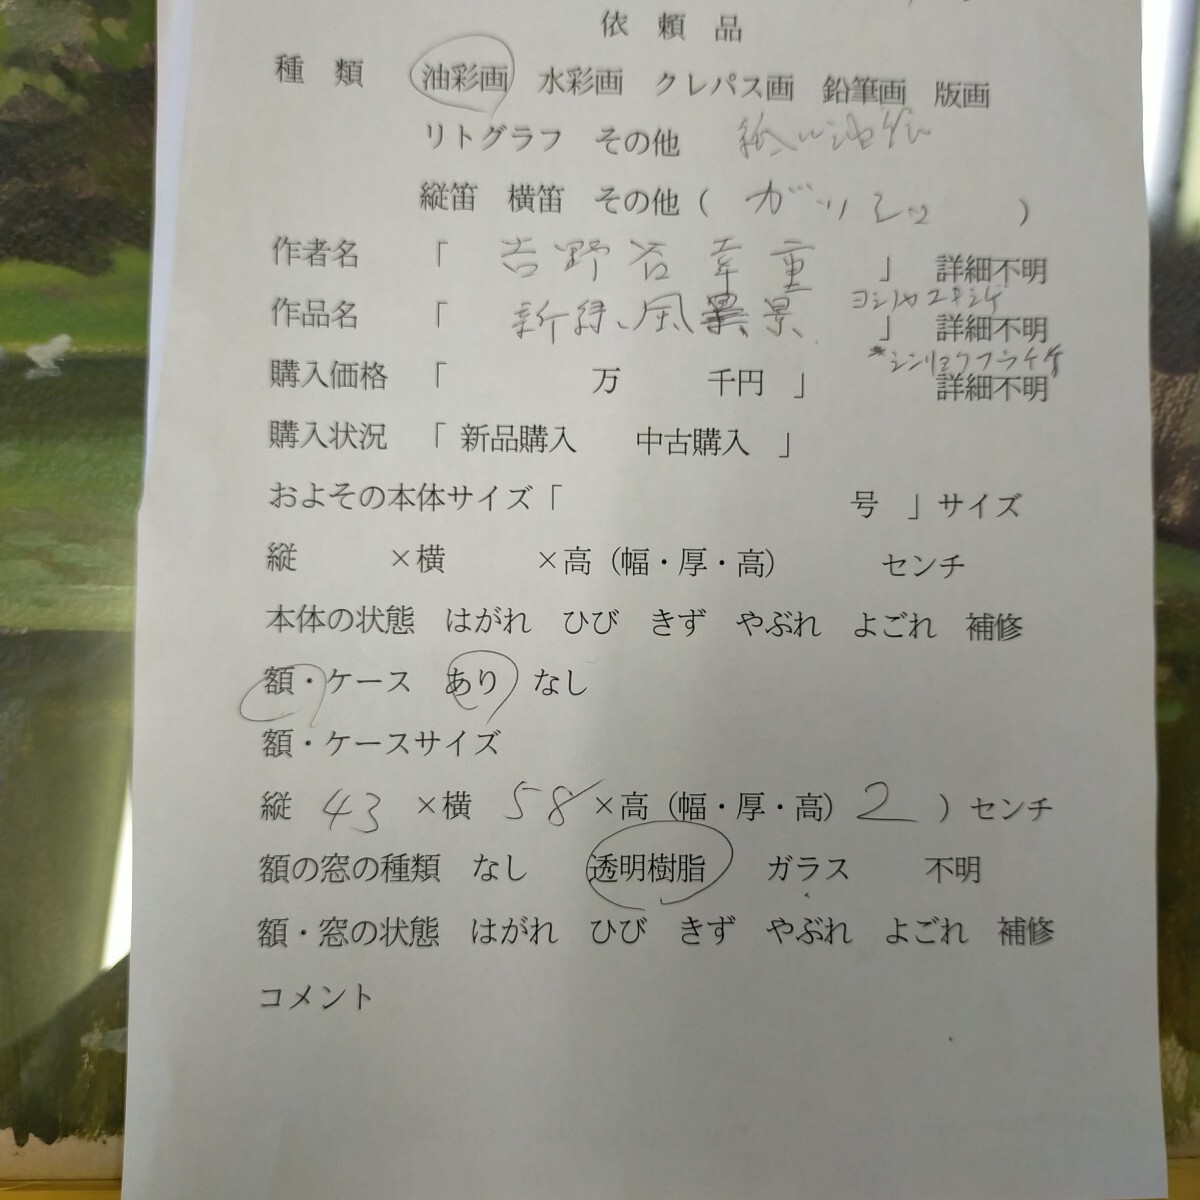 依 頼 品
種 類 油彩画 水彩画 クレパス画 鉛筆画 版画
リトグラフ その他 紙に油絵
縦笛 横笛 その他 ( ガッシュ )
作者名 「 吉野谷幸重 」 詳細不明
ヨシノヤユキシゲ
作品名 「 新緑、風景 」 詳細不明
シンリョクフウケイ
購入価格 「 万 千円 」 詳細不明
購入状況 「 新品購入 中古購入 」
およその本体サイズ「 号 」サイズ
縦 ×横 ×高 (幅・厚・高) センチ
本体の状態 はがれ ひび きず やぶれ よごれ 補修
額・ケース あり なし
額・ケースサイズ
縦 43 ×横 58 ×高 (幅・厚・高) 2 ) センチ
額の窓の種類 なし 透明樹脂 ガラス 不明
額・窓の状態 はがれ ひび きず やぶれ よごれ 補修
コメント